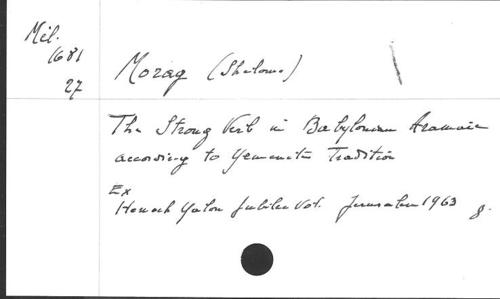 Mél.
1681
27
Morag (Shelomo)
The Strong Verb in Babylonian Aramaic
according to Yemenite Tradition
Ex
Henoch Yalon Jubilee Vol. Jerusalem 1963 8.